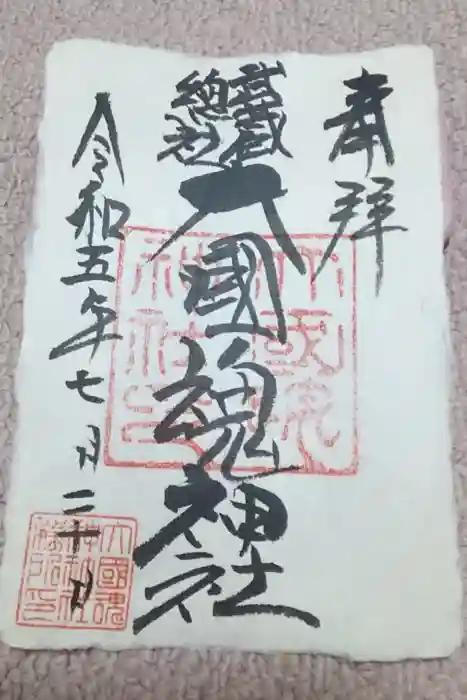 奉拝
武蔵
總社
大國魂神社
令和五年七月二十日
大國魂
神社印
大國魂
神社社
務所印